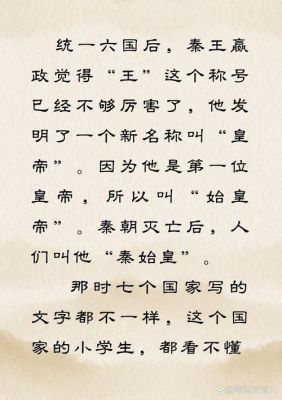 统一六国后，秦王嬴
政觉得“王”这个称号
已经不够厉害了，他发
明了一个新名称叫“皇
帝”。因为他是第一位
皇帝，所以叫“始皇
帝”。秦朝灭亡后，人
们叫他“秦始皇”。
那时七个国家写的
文字都不一样，这个国
家的小学生，都看不懂